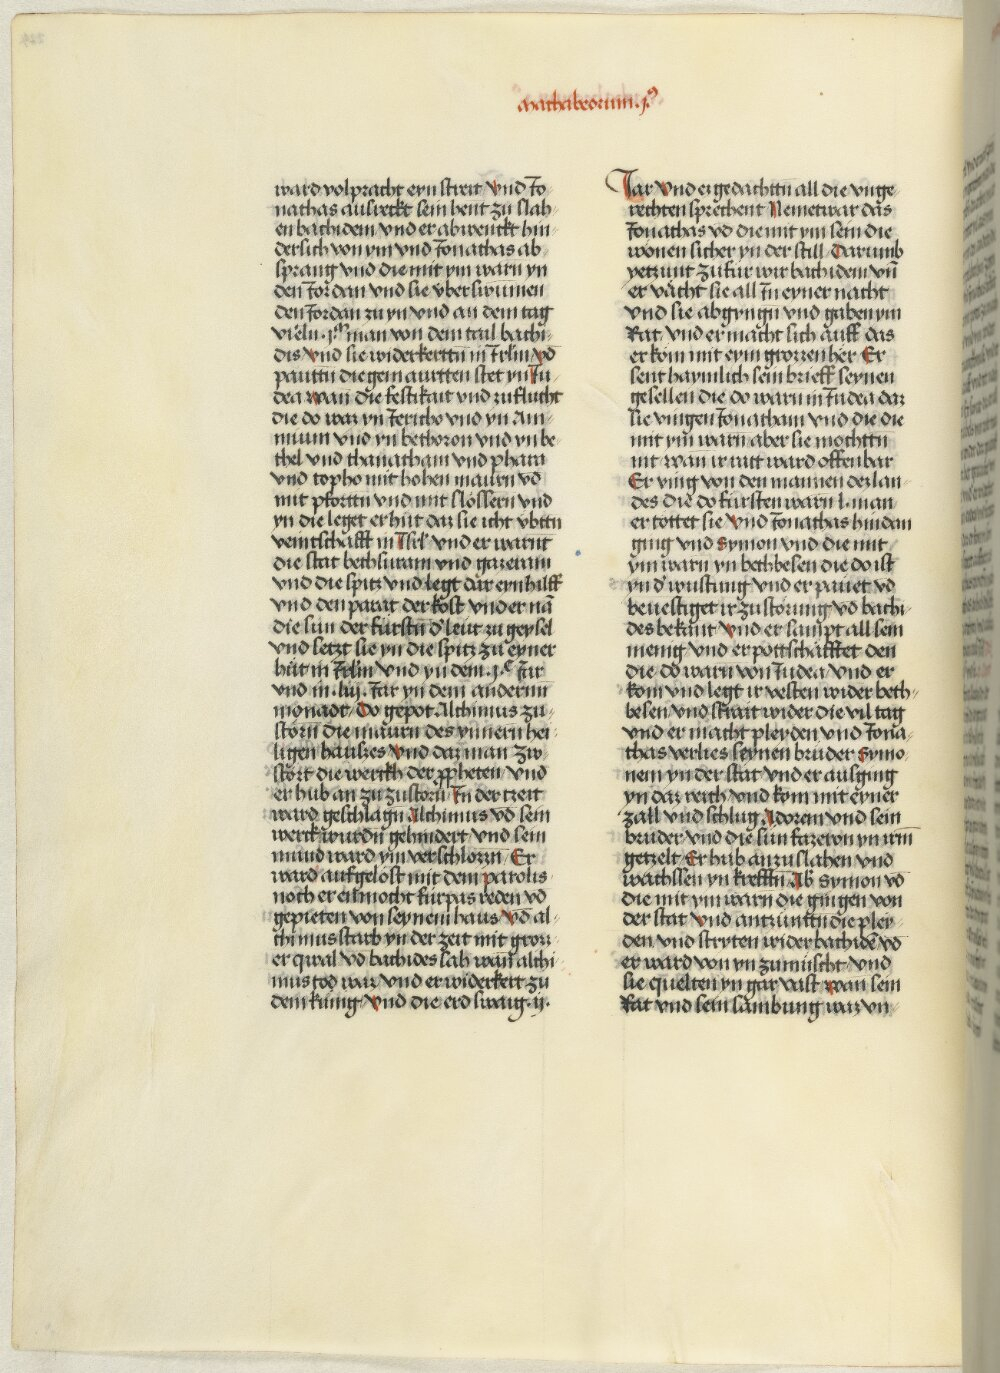 Machabeorum .j⁹
ward volpracht eyn streit vnd Jo-
nathas ausreckt sein hent zu slah-
en bachidem vnd er abwenckt hin-
derlich von ym vnd Jonathas ab-
sprang vnd die mit ym warn yn
den Jordan vnd sie vberswumen
den Jordan zu yn vnd an dem tag
vieln .jᵐ man von dem teil bachi-
dis vnd sie widerkerttn in Jrlm vd
pauttn die gemaurtten stet yn Ju-
dea wan die festikait vnd zuflucht
die do war yn Jericho vnd yn Am-
mium vnd yn bethoron vnd yn be-
thel vnd thanatham vnd phara
vnd topho mit hohen maurn vd
mit pforttn vnd mit slossern vnd
yn die leget er hut daz sie icht vbttn
veintschafft in Jsrl vnd er warnt
die stat bethsuram vnd gazeram
vnd die spitz vnd legt dar eyn hilff
vnd den parat der kost vnd er nā
die sun der furstn d' leut zu geysel
vnd setzt sie yn die spitz zu eyner
hut in Jrlm vnd yn dem .j.ᶜ Jar
vnd in .liij. Jar yn dem andernn
monadt Do gepot Alchimus zu-
storn die maurn des ynnern hei-
ligen hauses vnd daz man zw-
stort die werckh der ꝓpheten vnd
er hub an zu zustorn Jn der tzeit
ward geschlagn Alchimus vd sein
werck wurdn gehindert vnd sein
mund ward ym verschlozzn Er
ward aufgelost mit dem paralis
noch er enmocht furpas reden vd
gepieten von seynem haus vd al-
chimus starb yn der zeit mit grozz-
er qwal vd bachides sah wan alchi-
mus tod waz vnd er widerkert zu
dem kunig vnd die erd swaig .ij.
Jar vnd er gedachttn all die vnge-
rechten sprechent Nemet war das
Jonathas vd die mit ym sein die
wonen sicher yn der still Darumb
yetzunt zufur wir bachidem vn̄
er vācht sie all Jn eyner nacht
vnd sie abgyngn vnd gaben ym
Rat vnd er macht sich auff das
er kom mit eym grozzen her Er
sent haymlich sein brieff seynen
gesellen die do warn in Judea daz
sie vingen Jonatham vnd die die
mit ym warn aber sie mochttn
nit wan ir ratt ward offenbar
Er ving von den mannen dez lan-
des die do fursten warn .l. man
er tottet sie vnd Jonathas hindan
ging vnd Symon vnd die mit
ym warn yn bethbesen die do ist
yn d' wustung vnd er pauet vd
bevestiget ir zustorung vd bachi-
des bekant vnd er sampt all sein
menig vnd er pottschafftet den
die do warn von Judea vnd er
kom vnd legt ir vesten wider beth-
besen vnd streit wider die vil tag
vnd er macht pleyden vnd Jona-
thas verlies seynen bruder Symo-
nem yn der stat vnd er ausging
yn daz reich vnd kom mit eyner
zall vnd schlug Adorem vnd sein
bruder vnd die sun fazeron yn irm
getzelt Er hub an zu slahen vnd
wachssen yn krefftn Ab Symon vd
die mit ym warn die gingen von
der stat vnd antzunttn die pley-
den vnd stryten wider bachidē vd
er ward von yn zumischt vnd
sie quelten yn gar vast wan sein
Rat vnd sein sambung waz vn-